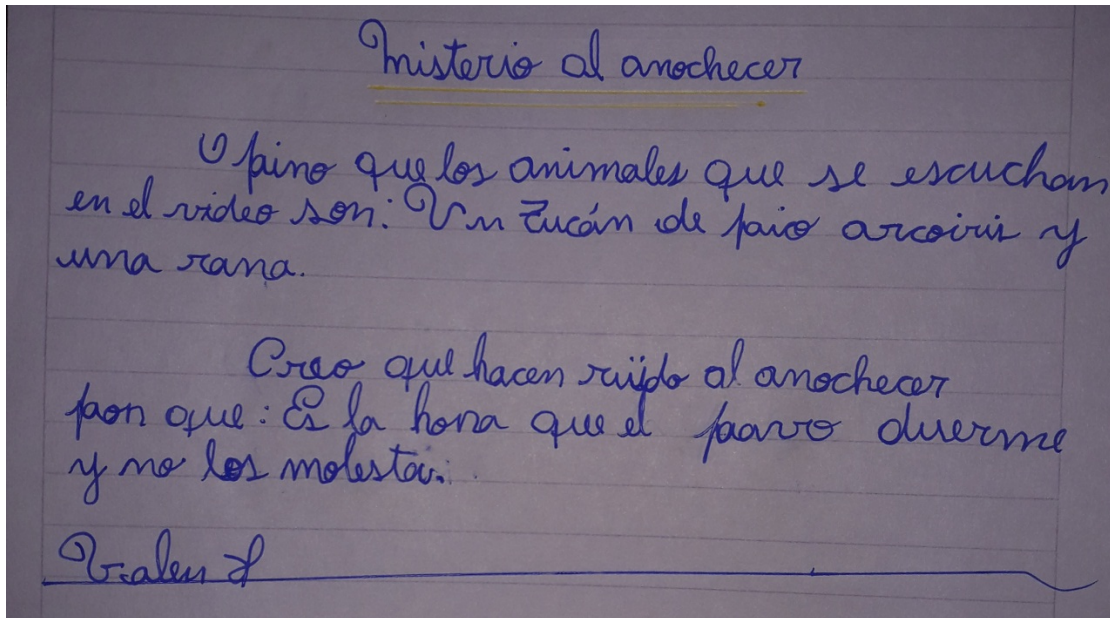 Misterio al anochecer
Opino que los animales que se escuchan
en el video son: Un Tucán de paio arcoiris y
una rana.
Creo que hacen ruido al anochecer
pon que: Es la hora que el pavo duerme
y no los molesta.
Valen